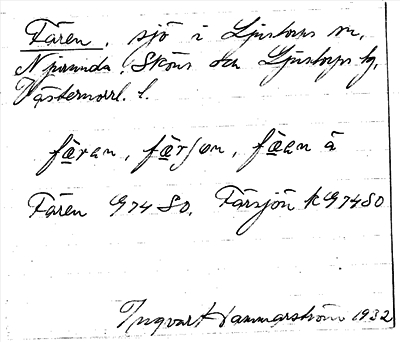 Fären, sjö i Ljustorps sn,
Njurunda, Sköns och Ljustorps tg,
Västernorrl. l.
færen, færſön, fæen å
Fären G 74 SO. Färsjön k G74SO
Ingvar Hammarström 1932